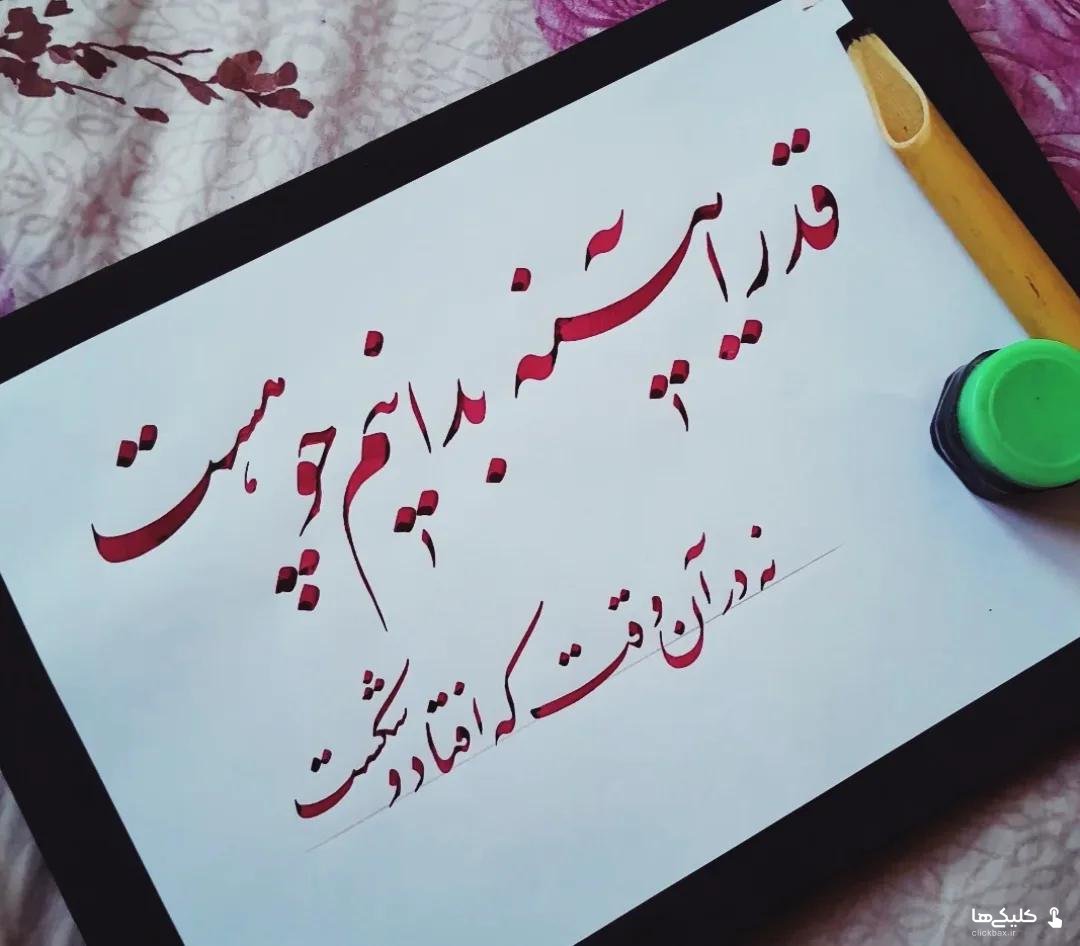 قدر آیینه بدانیم چو هست
نه در آن وقت که افتاد و شکست
کلیکی‌ها
clickbax.ir